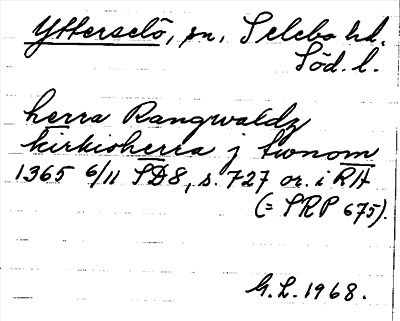 Ytterselö, sn, Selebo hd.
Söd. l.
herra Rangwaldz
kirkioherra j twnom
1365 6/11 SD8, s. 727 or. i RA
(= SRP 675).
G.L. 1968.